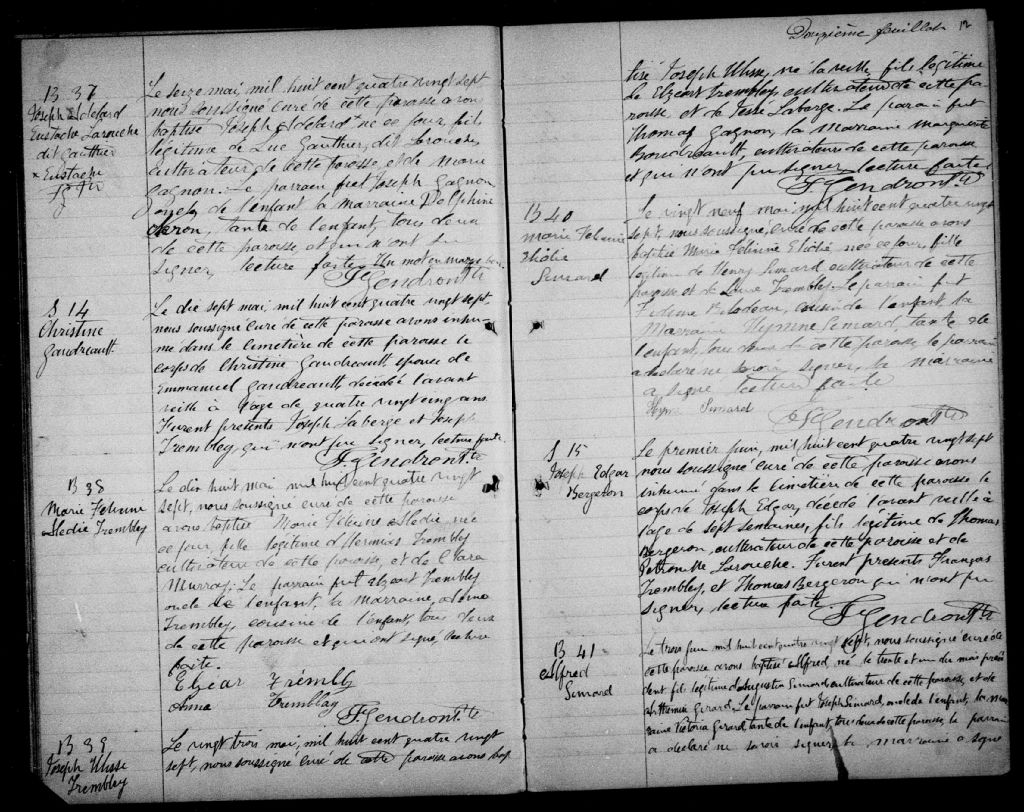 B 37
Joseph Eldelard
Eustache Larouche
dit Gauthier
x Eustache
Le seize mai, mil huit cent quatre vingt sept
nous soussigné curé de cette paroisse avons
baptisé Joseph Eldelard + né ce jour, fils
légitime de Luc Gauthier, dit Larouche,
cultivateur de cette paroisse, et de Marie
Gagnon. Le parrain fut Joseph Gagnon
de l'enfant la marraine Delphine
tante de l'enfant, tous deux
de cette paroisse, et qui n'ont su
signer, lecture faite, Un mot en marge bon.
F. Gendron Ptre
S 14
Christine
Gaudreault
Le dix sept mai, mil huit cent quatre vingt sept,
nous soussigné curé de cette paroisse avons inhu-
mé dans le cimetière de cette paroisse le
corps de Christine Gaudreault, épouse de
Emmanuel Gaudreault, décédée l'avant
veille à l'age de quatre vingt cinq ans.
Furent présents Joseph Laberge et Joseph
Trembley qui n'ont pu signer, lecture faite.
F. Gendron Ptre
B 38
Marie Felinne
Aledie Trembley
Le dix huit mai mil huit cent quatre vingt
sept, nous soussigné curé de cette paroisse
avons baptisé Marie Felinne Aledie, née
ce jour, fille légitime d'Hermias Trembley
cultivateur de cette paroisse, et de Clara
Murray. Le parrain fut Elzear Trembley
oncle de l'enfant, la marraine, Anna
Trembley, cousine de l'enfant, tous deux
de cette paroisse et qui ont signé, lecture
faite.
Elzear Trembly
Anna Tremblay
F. Gendron Ptre
B 39
Joseph Ulisse
Trembley
Le vingt trois mai, mil huit cent quatre vingt
sept, nous soussigné curé de cette paroisse avons bap-
Douzième feuillet 12
tisé Joseph Ulisse, né la veille, fils légitime
de Elzear Trembley, cultivateur de cette pa-
roisse, et de Laberge. Le parrain fut
Thomas Gagnon, la Marraine Marguerite
Boudreault, cultivateurs de cette paroisse
et qui n'ont pu signer, lecture faite.
F. Gendron Ptre
B 40
Marie Felinne
Elodie
Simard
Le vingt neuf mai, mil huit cent quatre vingt
sept, nous soussigné, curé de cette paroisse avons
baptisé Marie Felinne Elodie née ce jour, fille
légitime de Henry Simard cultivateur de cette
paroisse et de Trembley. Le parrain fut
Bilodeau, cousin de l'enfant la
Marraine Simard, tante de
l'enfant, tous deux de cette paroisse le parrain
a déclaré ne savoir signer, la marraine
a signé lecture faite
Simard
F. Gendron Ptre
S 15
Joseph Edgar
Bergeron
Le premier juin, mil huit cent quatre vingt sept
nous soussigné curé de cette paroisse avons
inhumé dans le cimetière de cette paroisse le
corps de Joseph Edgar, décédé l'avant veille à
l'age de sept semaines, fils légitime de Thomas
Bergeron, cultivateur de cette paroisse et de
Petronille Larouche. Furent présents François
Trembley, et Thomas Bergeron qui n'ont pu
signer, lecture faite.
F. Gendron Ptre
B 41
Alfred
Simard
Le trois juin mil huit cent quatre vingt sept, nous soussigné curé de
cette paroisse avons baptisé Alfred, né le trente et un du mois précé
dent fils légitime d'Augustin Simard cultivateur de cette paroisse, et de
Girard. Le parrain fut Joseph Simard, oncle de l'enfant, la mar
raine Victoria Girard, tante de l'enfant, tous deux de cette paroisse, le parrain
a déclaré ne savoir signer la marraine a signé